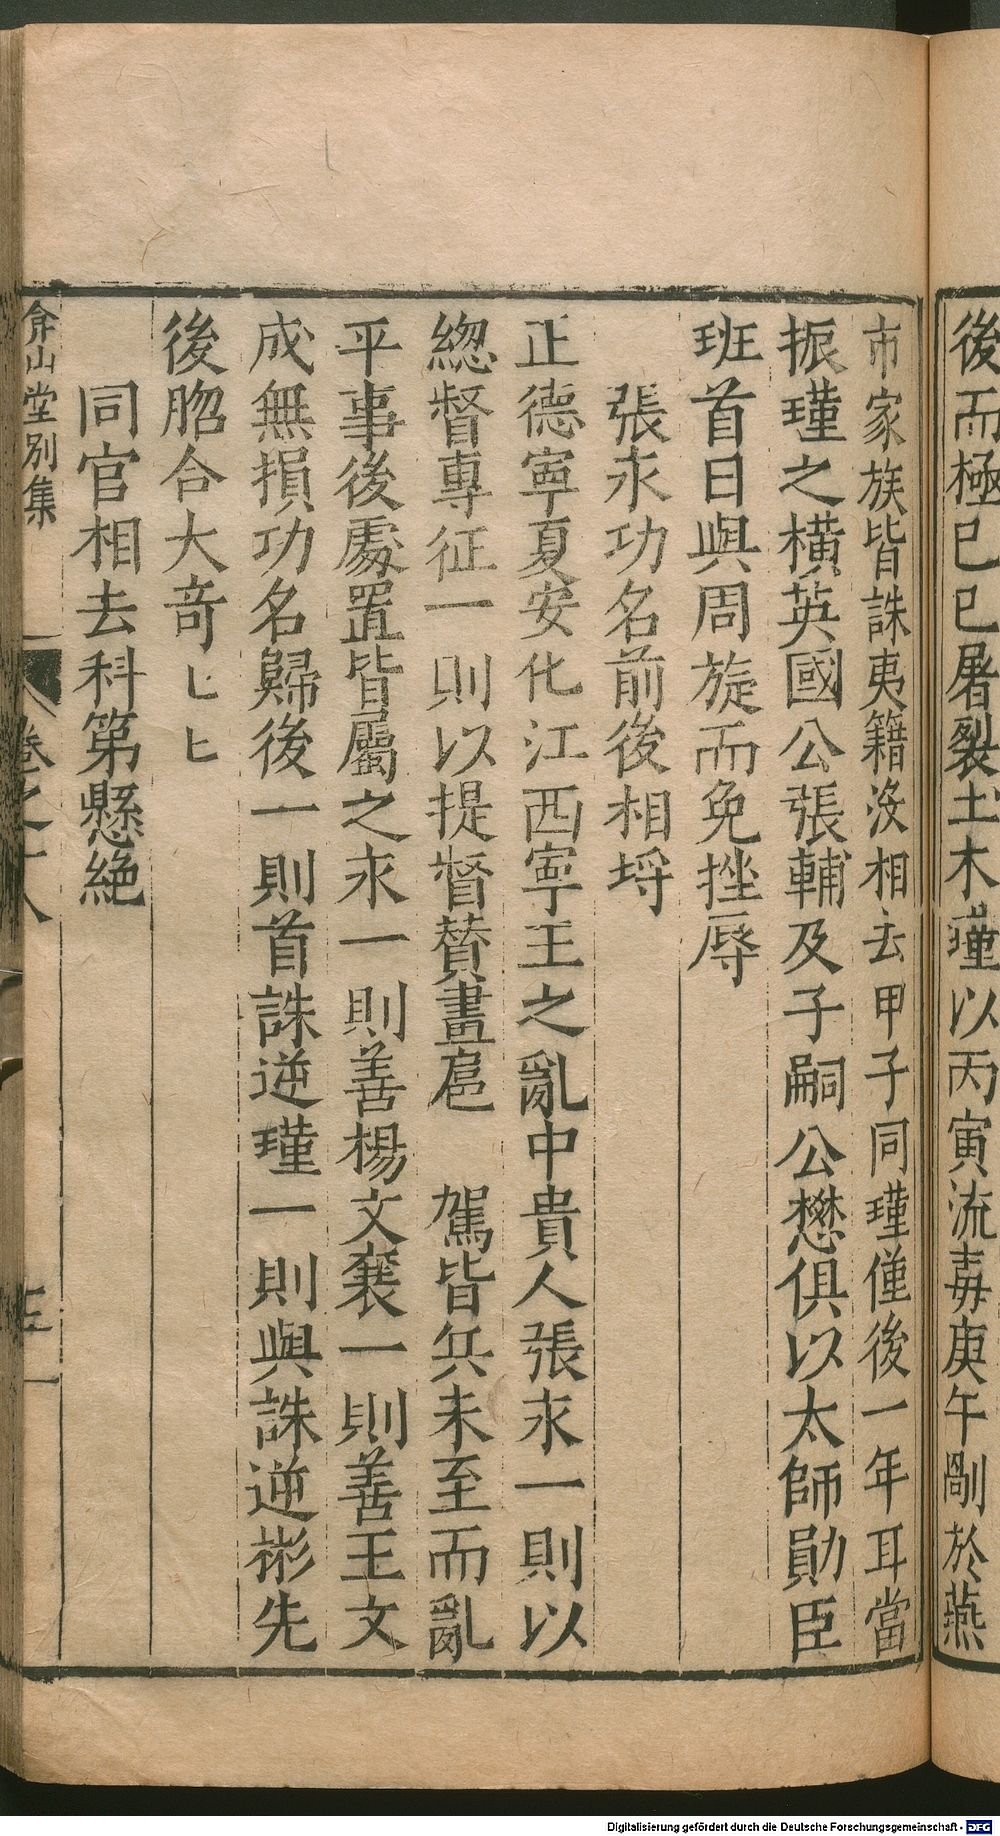 後而極己巳屠裂土木瑾以丙寅流毒庚午剮於燕
市家族皆誅夷籍沒相去甲子同瑾僅後一年耳當
振瑾之橫英國公張輔及子嗣公懋俱以太師勛臣
班首日與周旋而免挫辱
張永功名前後相埒
正德寧夏安化江西寧王之亂中貴人張永一則以
總督專征一則以提督贊畫扈 駕皆兵未至而亂
平事後處置皆屬之永一則善楊文襄一則善王文
成無損功名歸後一則首誅逆瑾一則與誅逆彬先
後脗合大奇匕匕
同官相去科第懸絶
弇山堂别集 卷之十八 三
Digitalisierung gefördert durch die Deutsche Forschungsgemeinschaft - DFG